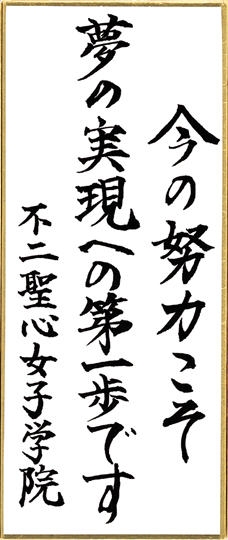 今の努力こそ
夢の実現への第一歩です
不二聖心女子学院